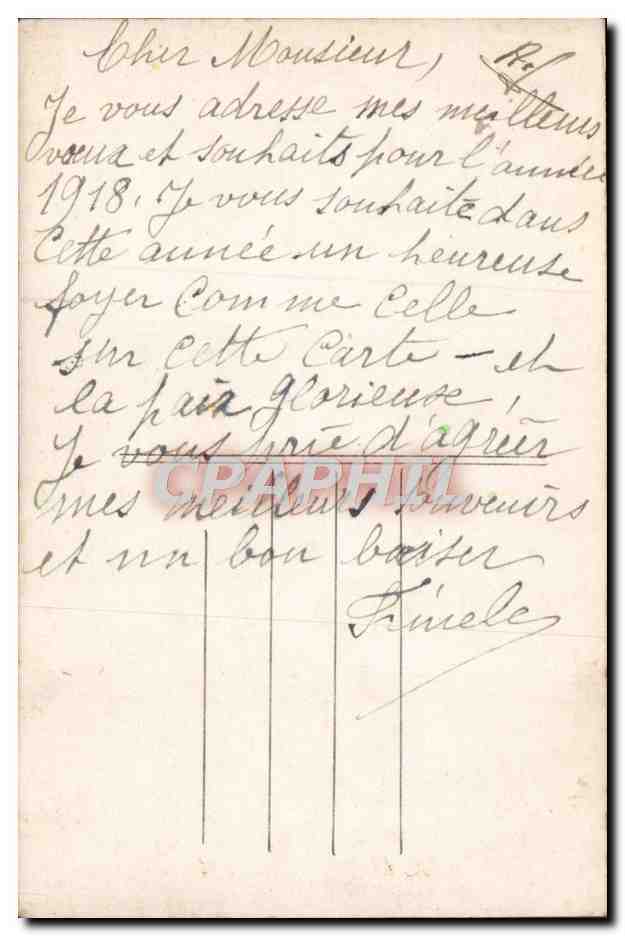 Cher Monsieur,
Je vous adresse mes meilleurs
vœux et souhaits pour l'année
1918. Je vous souhaite dans
cette année un heureuse
foyer comme celle
sur cette carte - et
la paix glorieuse,
Je vous prie d'agréer
CPAPHIL
mes meilleurs souvenirs
et un bon baiser